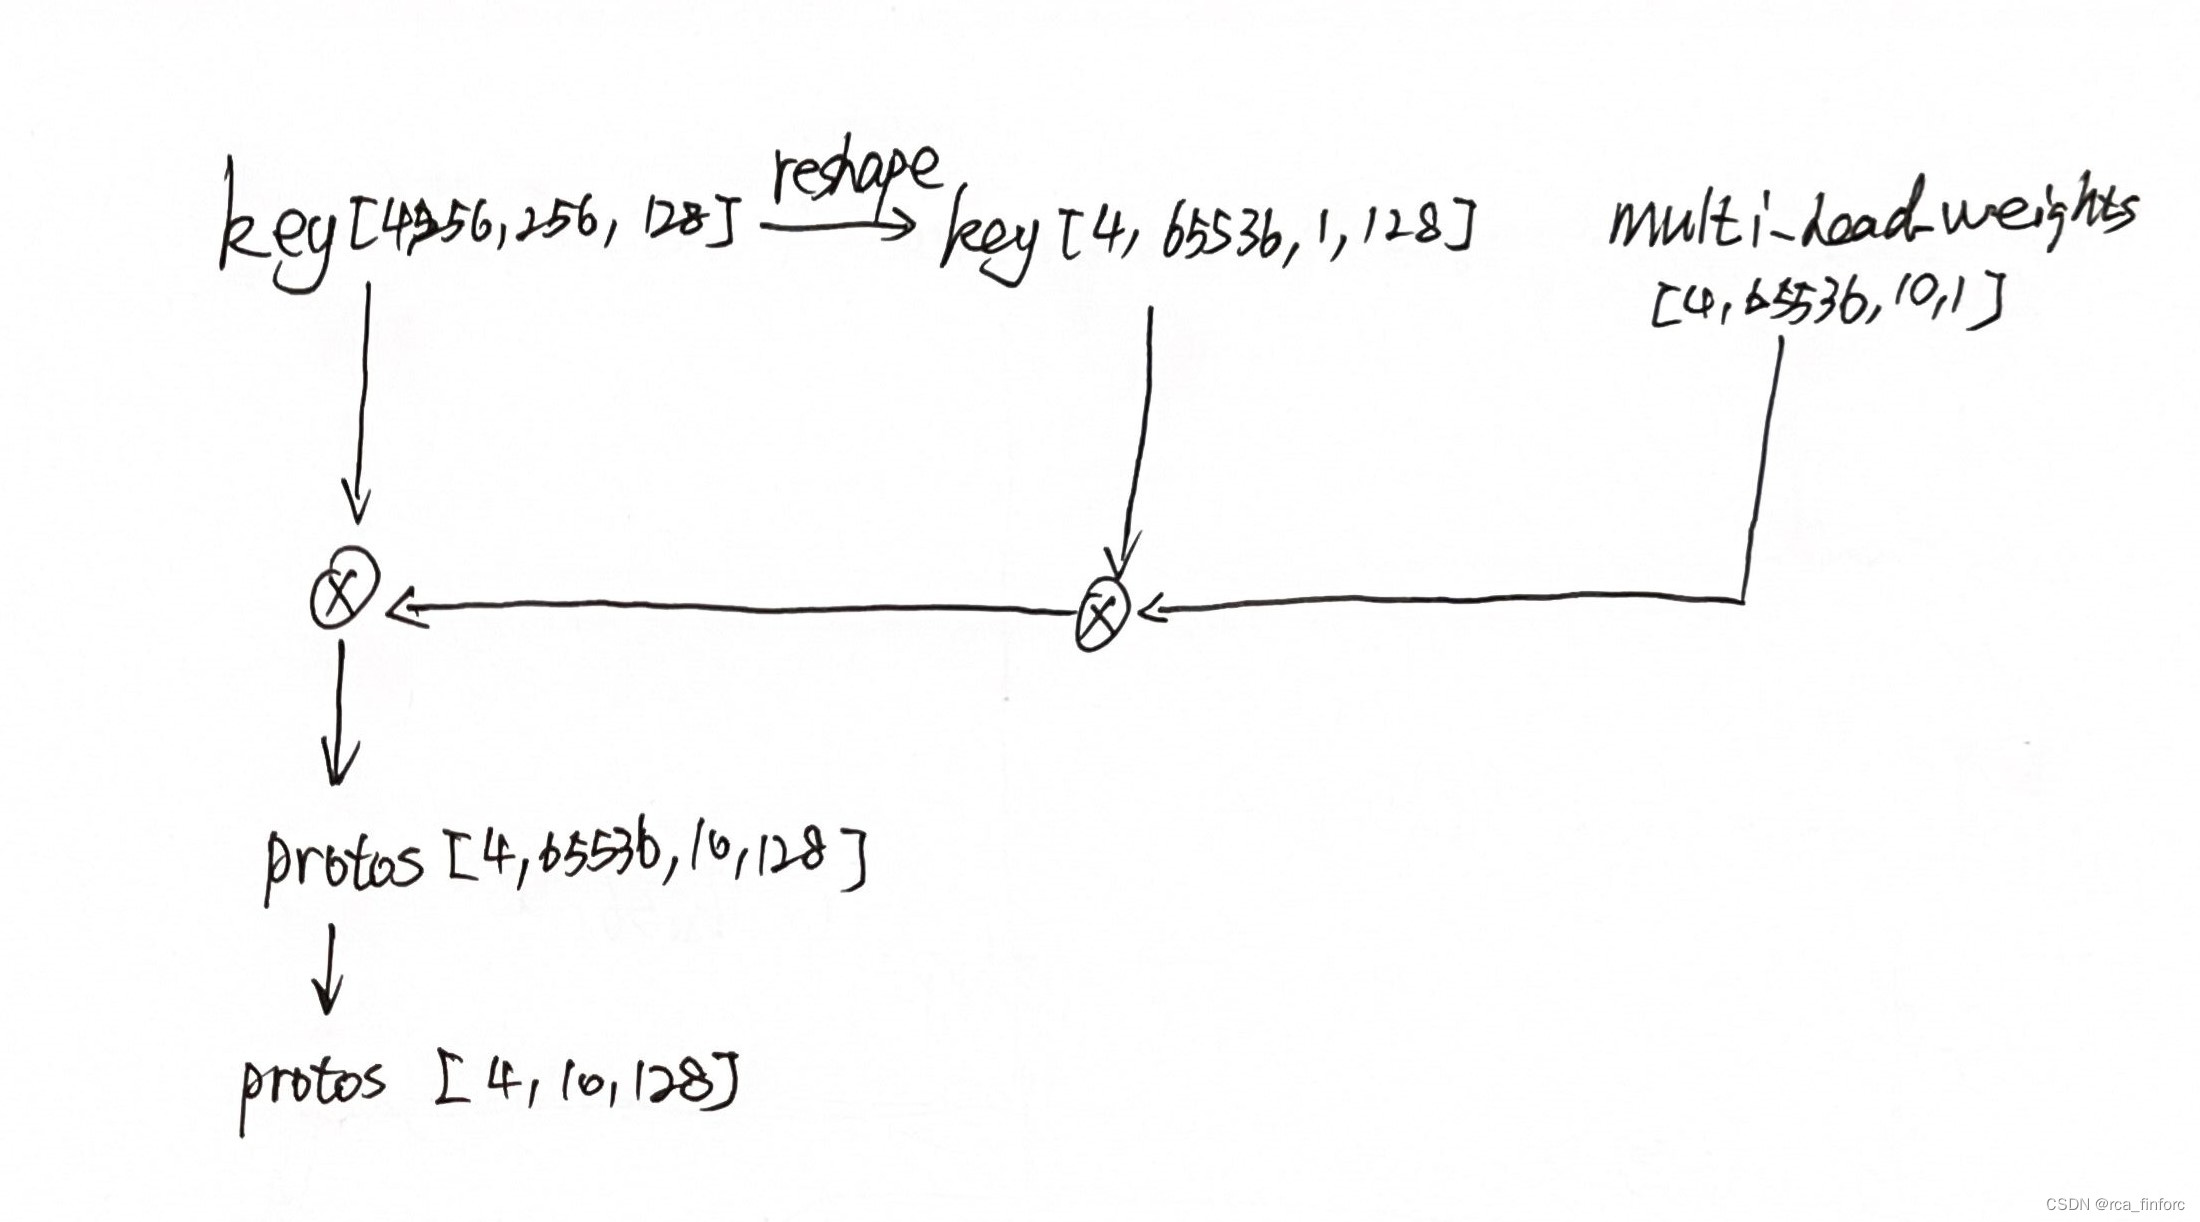 reshape
key [4,256,256,128] key [4,65536,1,128] multi-head-weights
[4,65536,10,1]
protos [4,65536,10,128]
protos [4,10,128]
CSDN @rca_finforc